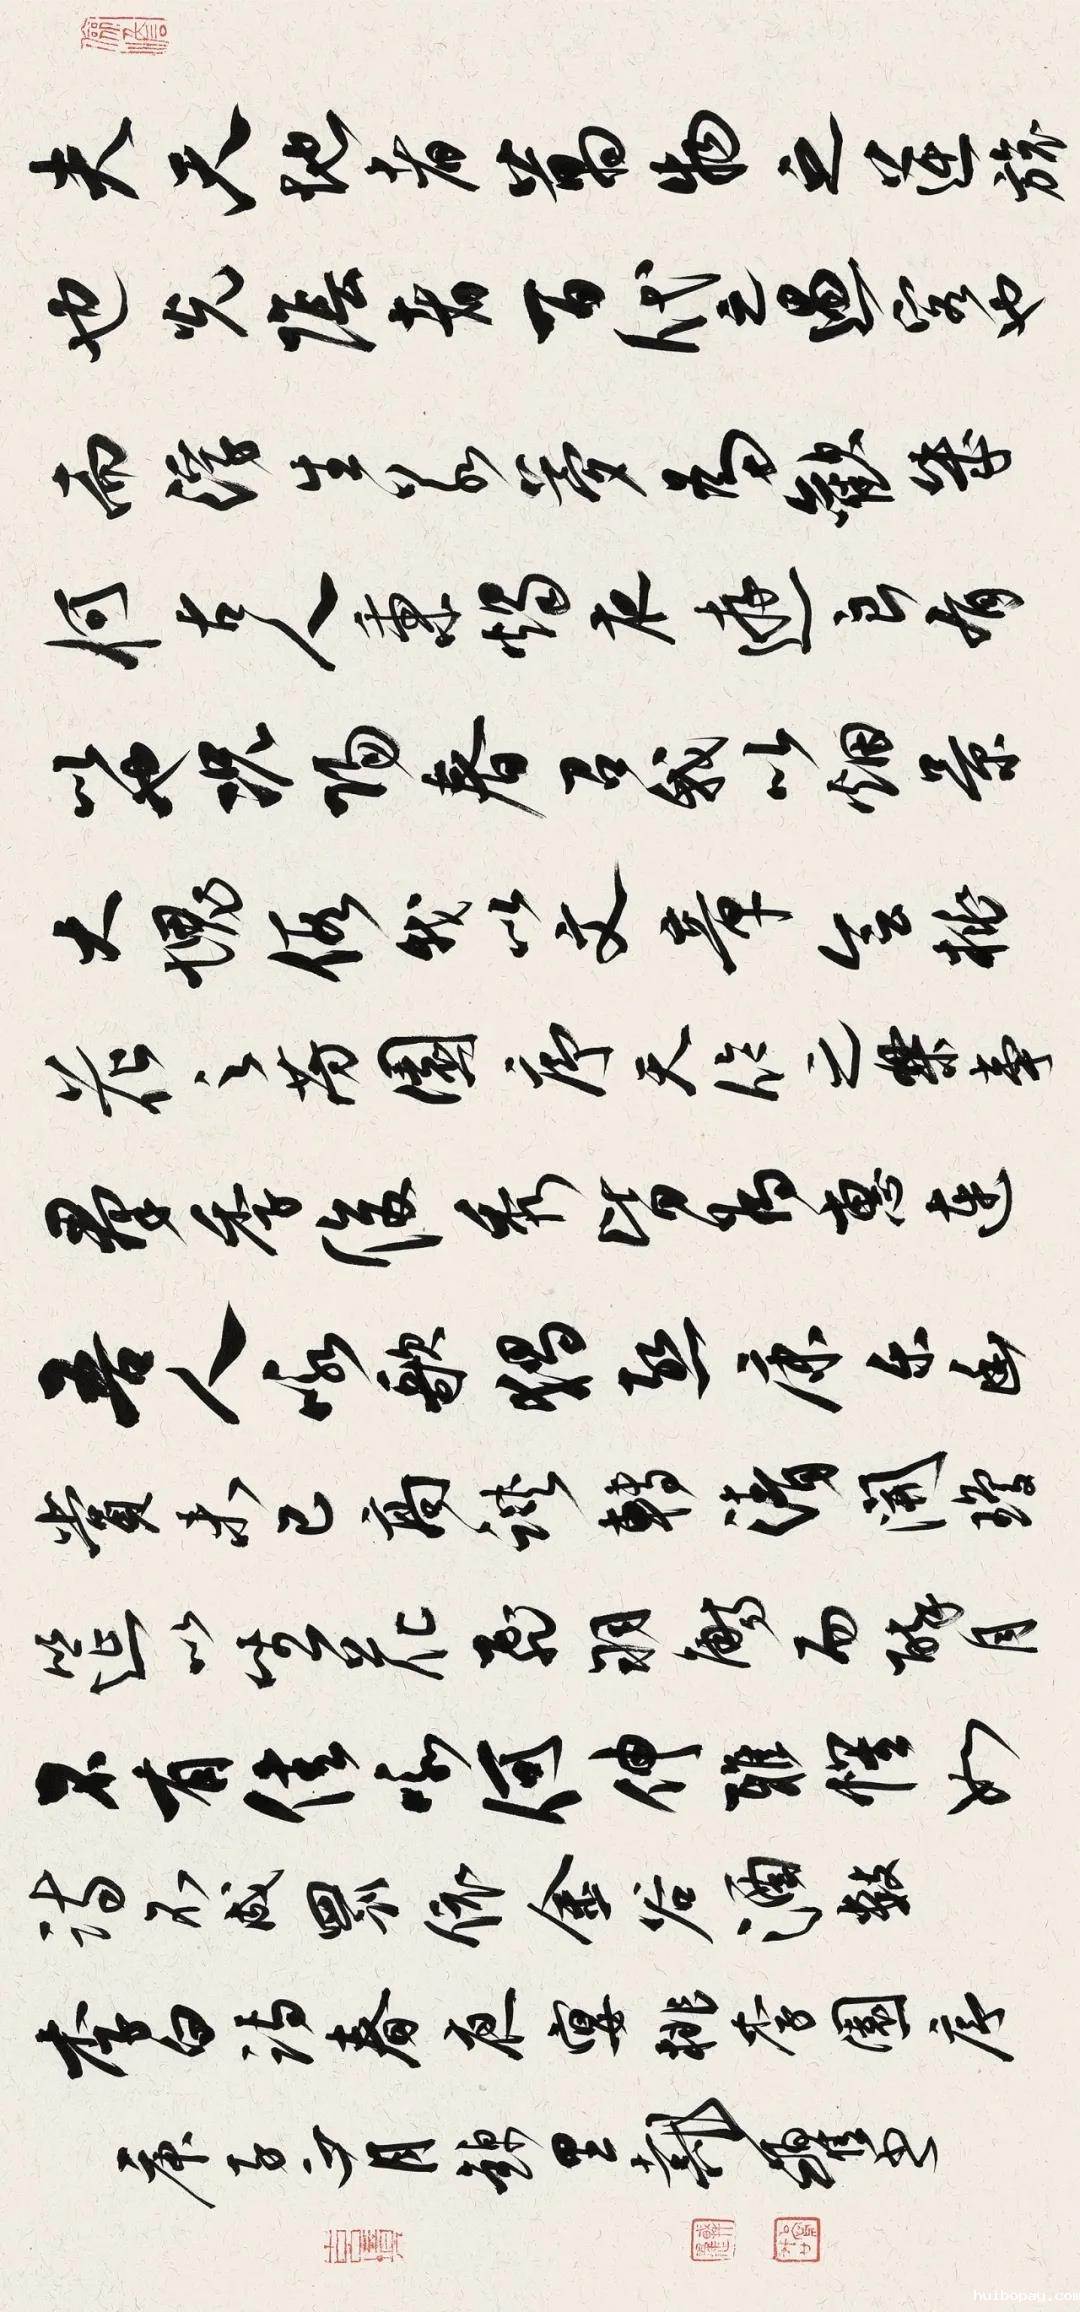 夫天地者萬物之逆旅
也光陰者百代之過客也
而浮生若夢爲歡幾
何古人秉燭夜遊良有
以也況陽春召我以烟景
大塊假我以文章會桃
花之芳園序天倫之樂事
群季俊秀皆爲惠連
吾人詠歌獨慙康乐幽
賞未已高談轉清開瓊
筵以坐花飛羽觴而醉月
不有佳詠何伸雅懷如
詩不成罰依金谷酒數
李白詩春夜宴桃李園序
庚子月錦里戴書
huibopay.com